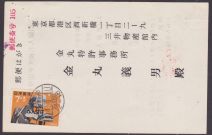 東京都港区西新橋一丁目二ノ九
三井物産館内
金丸特許事務所
金丸義男殿
郵便はがき
郵便番号 105